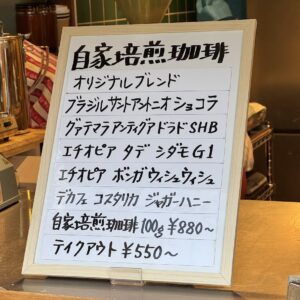 自家焙煎珈琲
オリジナルブレンド
ブラジルサントアントニオショコラ
グァテマラアンティグアドラドSHB
エチオピア タデ シダモG1
エチオピア ボンガウィシュウィシュ
デカフェ コスタリカ ジャガーハニー
自家焙煎珈琲100g¥880～
テイクアウト¥550～